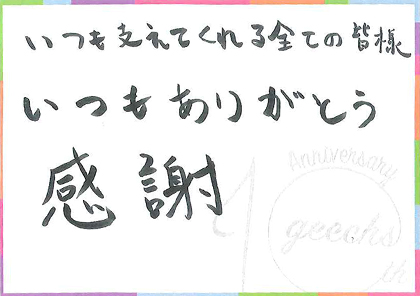 いつも支えてくれる全ての皆様
いつもありがとう
感謝
Anniversary
10
geechs
th